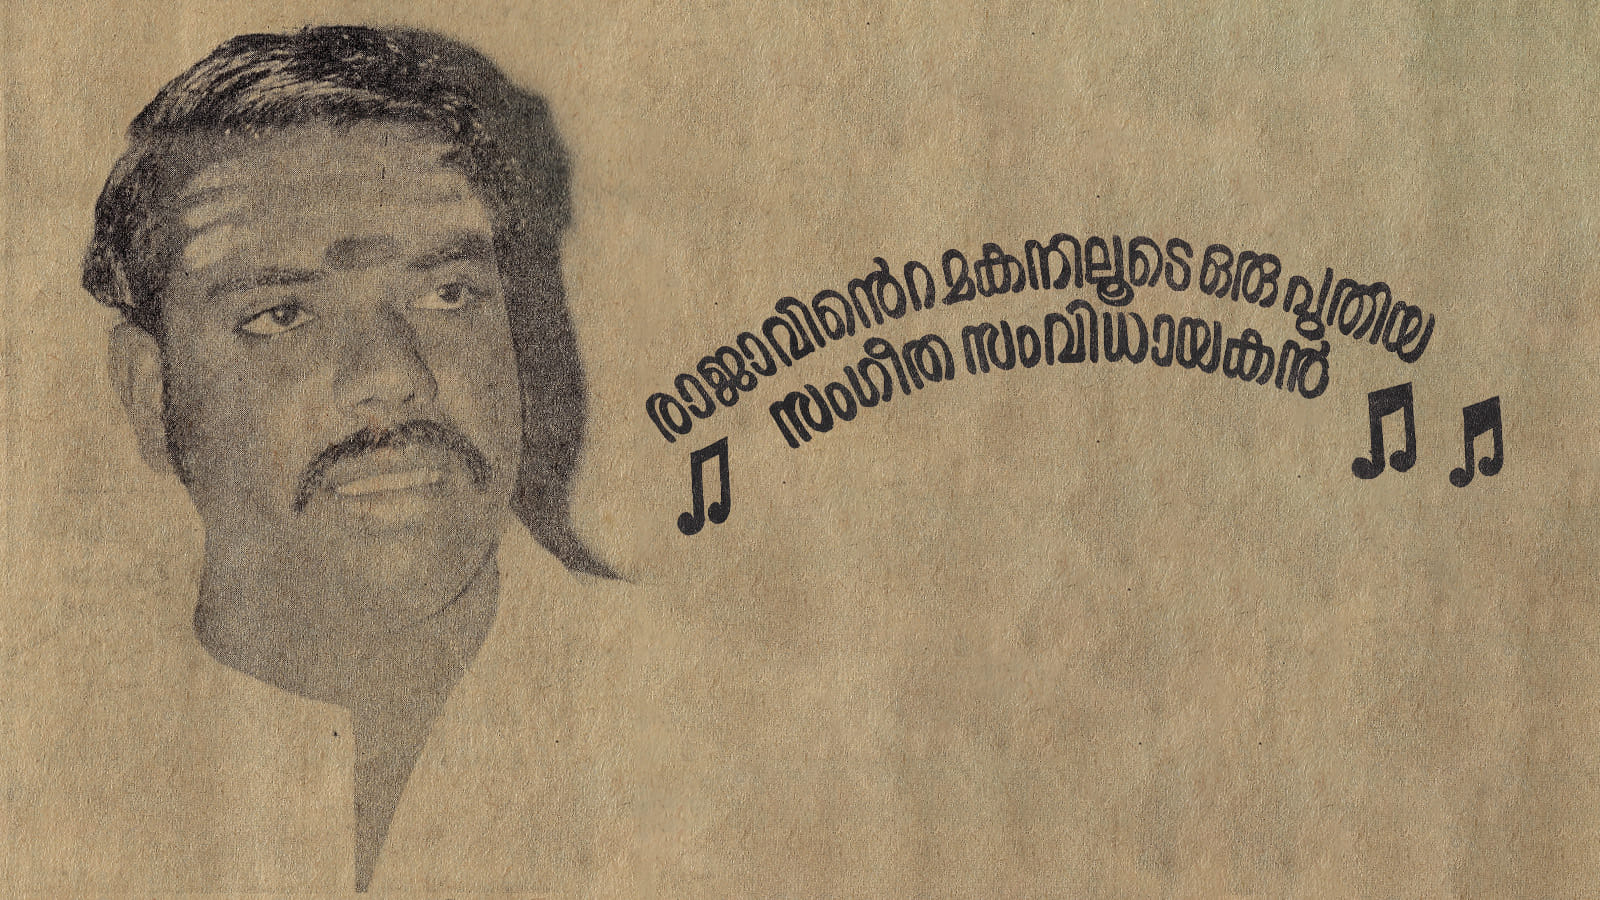 രാജാവിൻെറ മകനിലൂടെ ഒരു പുതിയ
സംഗീത സംവിധായകൻ